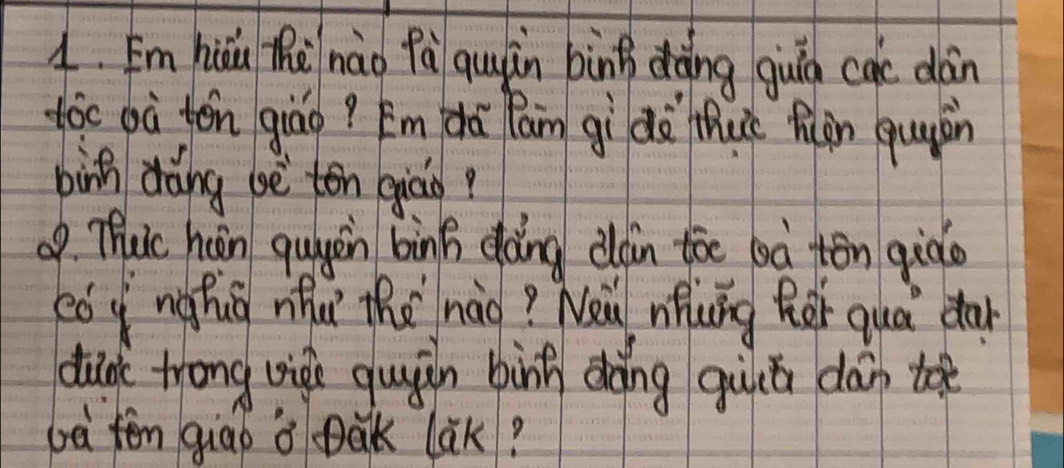 1. Em hiểu thế nào là quyền bình đẳng giữa các dân
tộc và tôn giáo? Em đã làm gì để thực hiện quyền
bình đẳng về tôn giáo?
2. Thực hiện quyền bình đẳng dân tộc và tôn giáo
có ý nghĩa như thế nào? Nêu những kết quả đạt
được trong việc quyền bình đẳng giữa dân tộc
và tôn giáo ở Đăk Lăk?